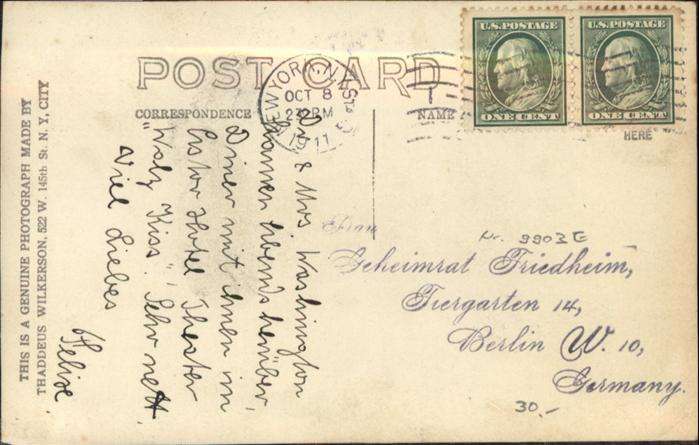 POST CARD
CORRESPONDENCE
NAME
HERE
THIS IS A GENUINE PHOTOGRAPH MADE BY
THADDEUS WILKERSON, 522 W. 145th St. N. Y, CITY
NEW YORK, N.Y.
OCT 8
2 PM
1911
U.S. POSTAGE
ONE CENT
U.S. POSTAGE
ONE CENT
Dr & Mrs. Washington
kamen abends herüber,
Diner mit ihnen im
Astor Hotel Theater
"Walz Kiss". Sehr nett
Viel Liebes
Felix.
Nr. 9903E
Geheimrat Friedheim,
Tiergarten 14,
Berlin W. 10,
Germany.
30,-